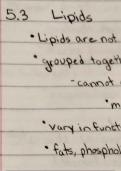 5.3 Lipids
• Lipids are not
• grouped togeth
- cannot
• m
• vary in funct
• fats, phosphol